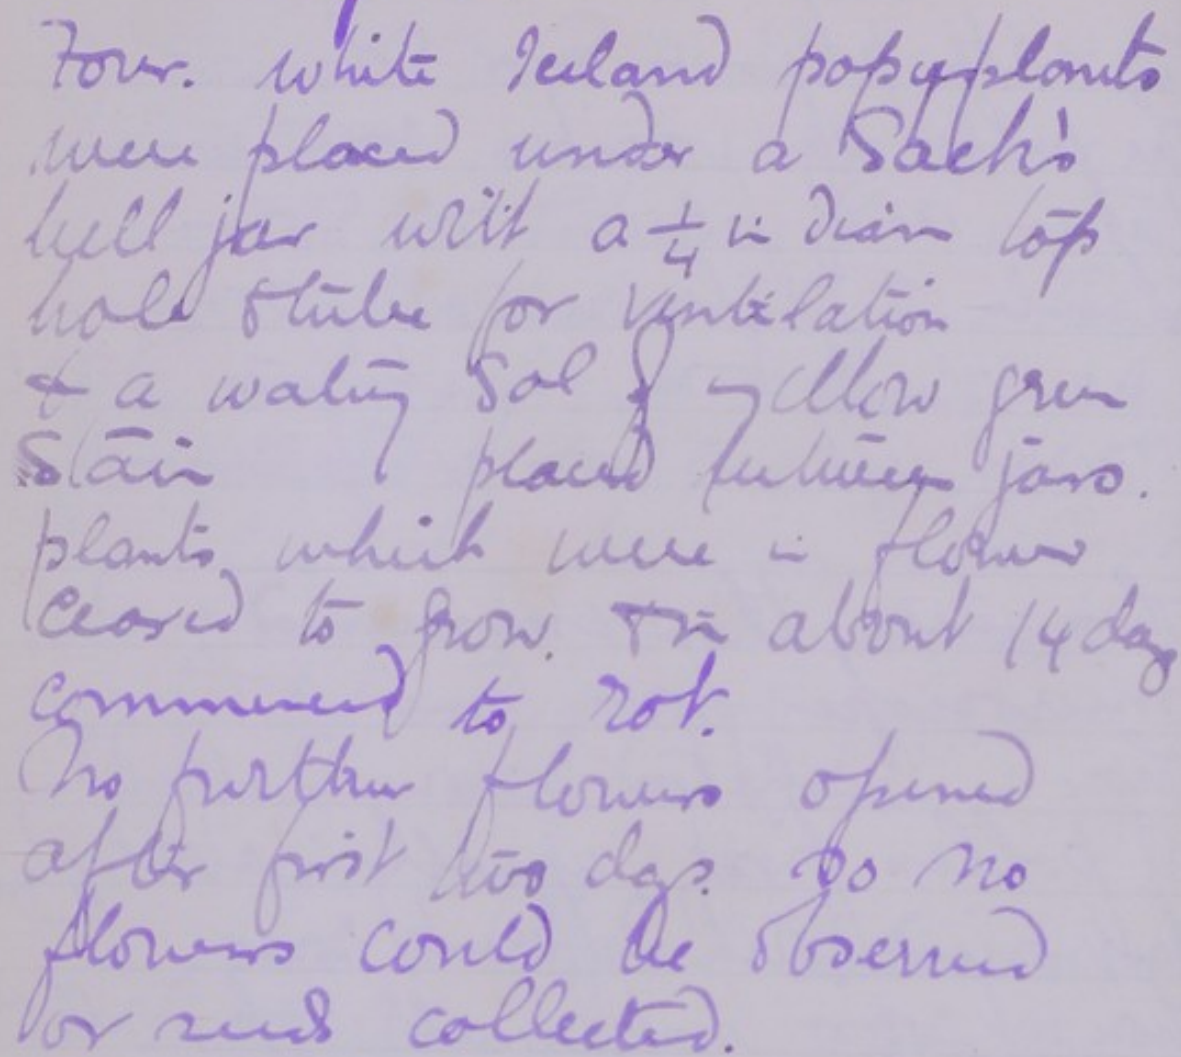 Four. white Iceland popy plants
were placed under a Sach's
bell jar with a 1/4 in diam top
hole & tube for ventilation
& a watery Sol of yellow green
stain placed between jars.
plants, which were in flower
Ceased to grow. & in about 14 days
commenced to rot.
No further flowers opened
after first two days. So no
flowers could be observed
or seeds collected.